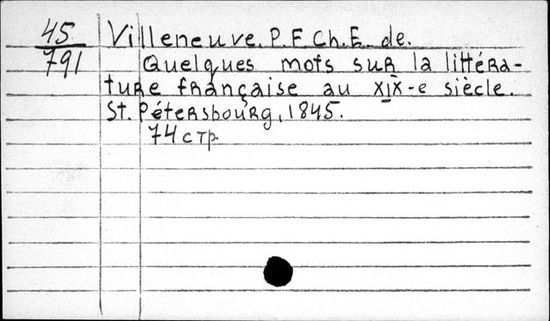 45
791
Villeneuve. P.F.Ch.E. de.
Quelques mots sur la littéra-
ture française au XIX-e siècle.
St. Pétersbourg, 1845.
74 стр.